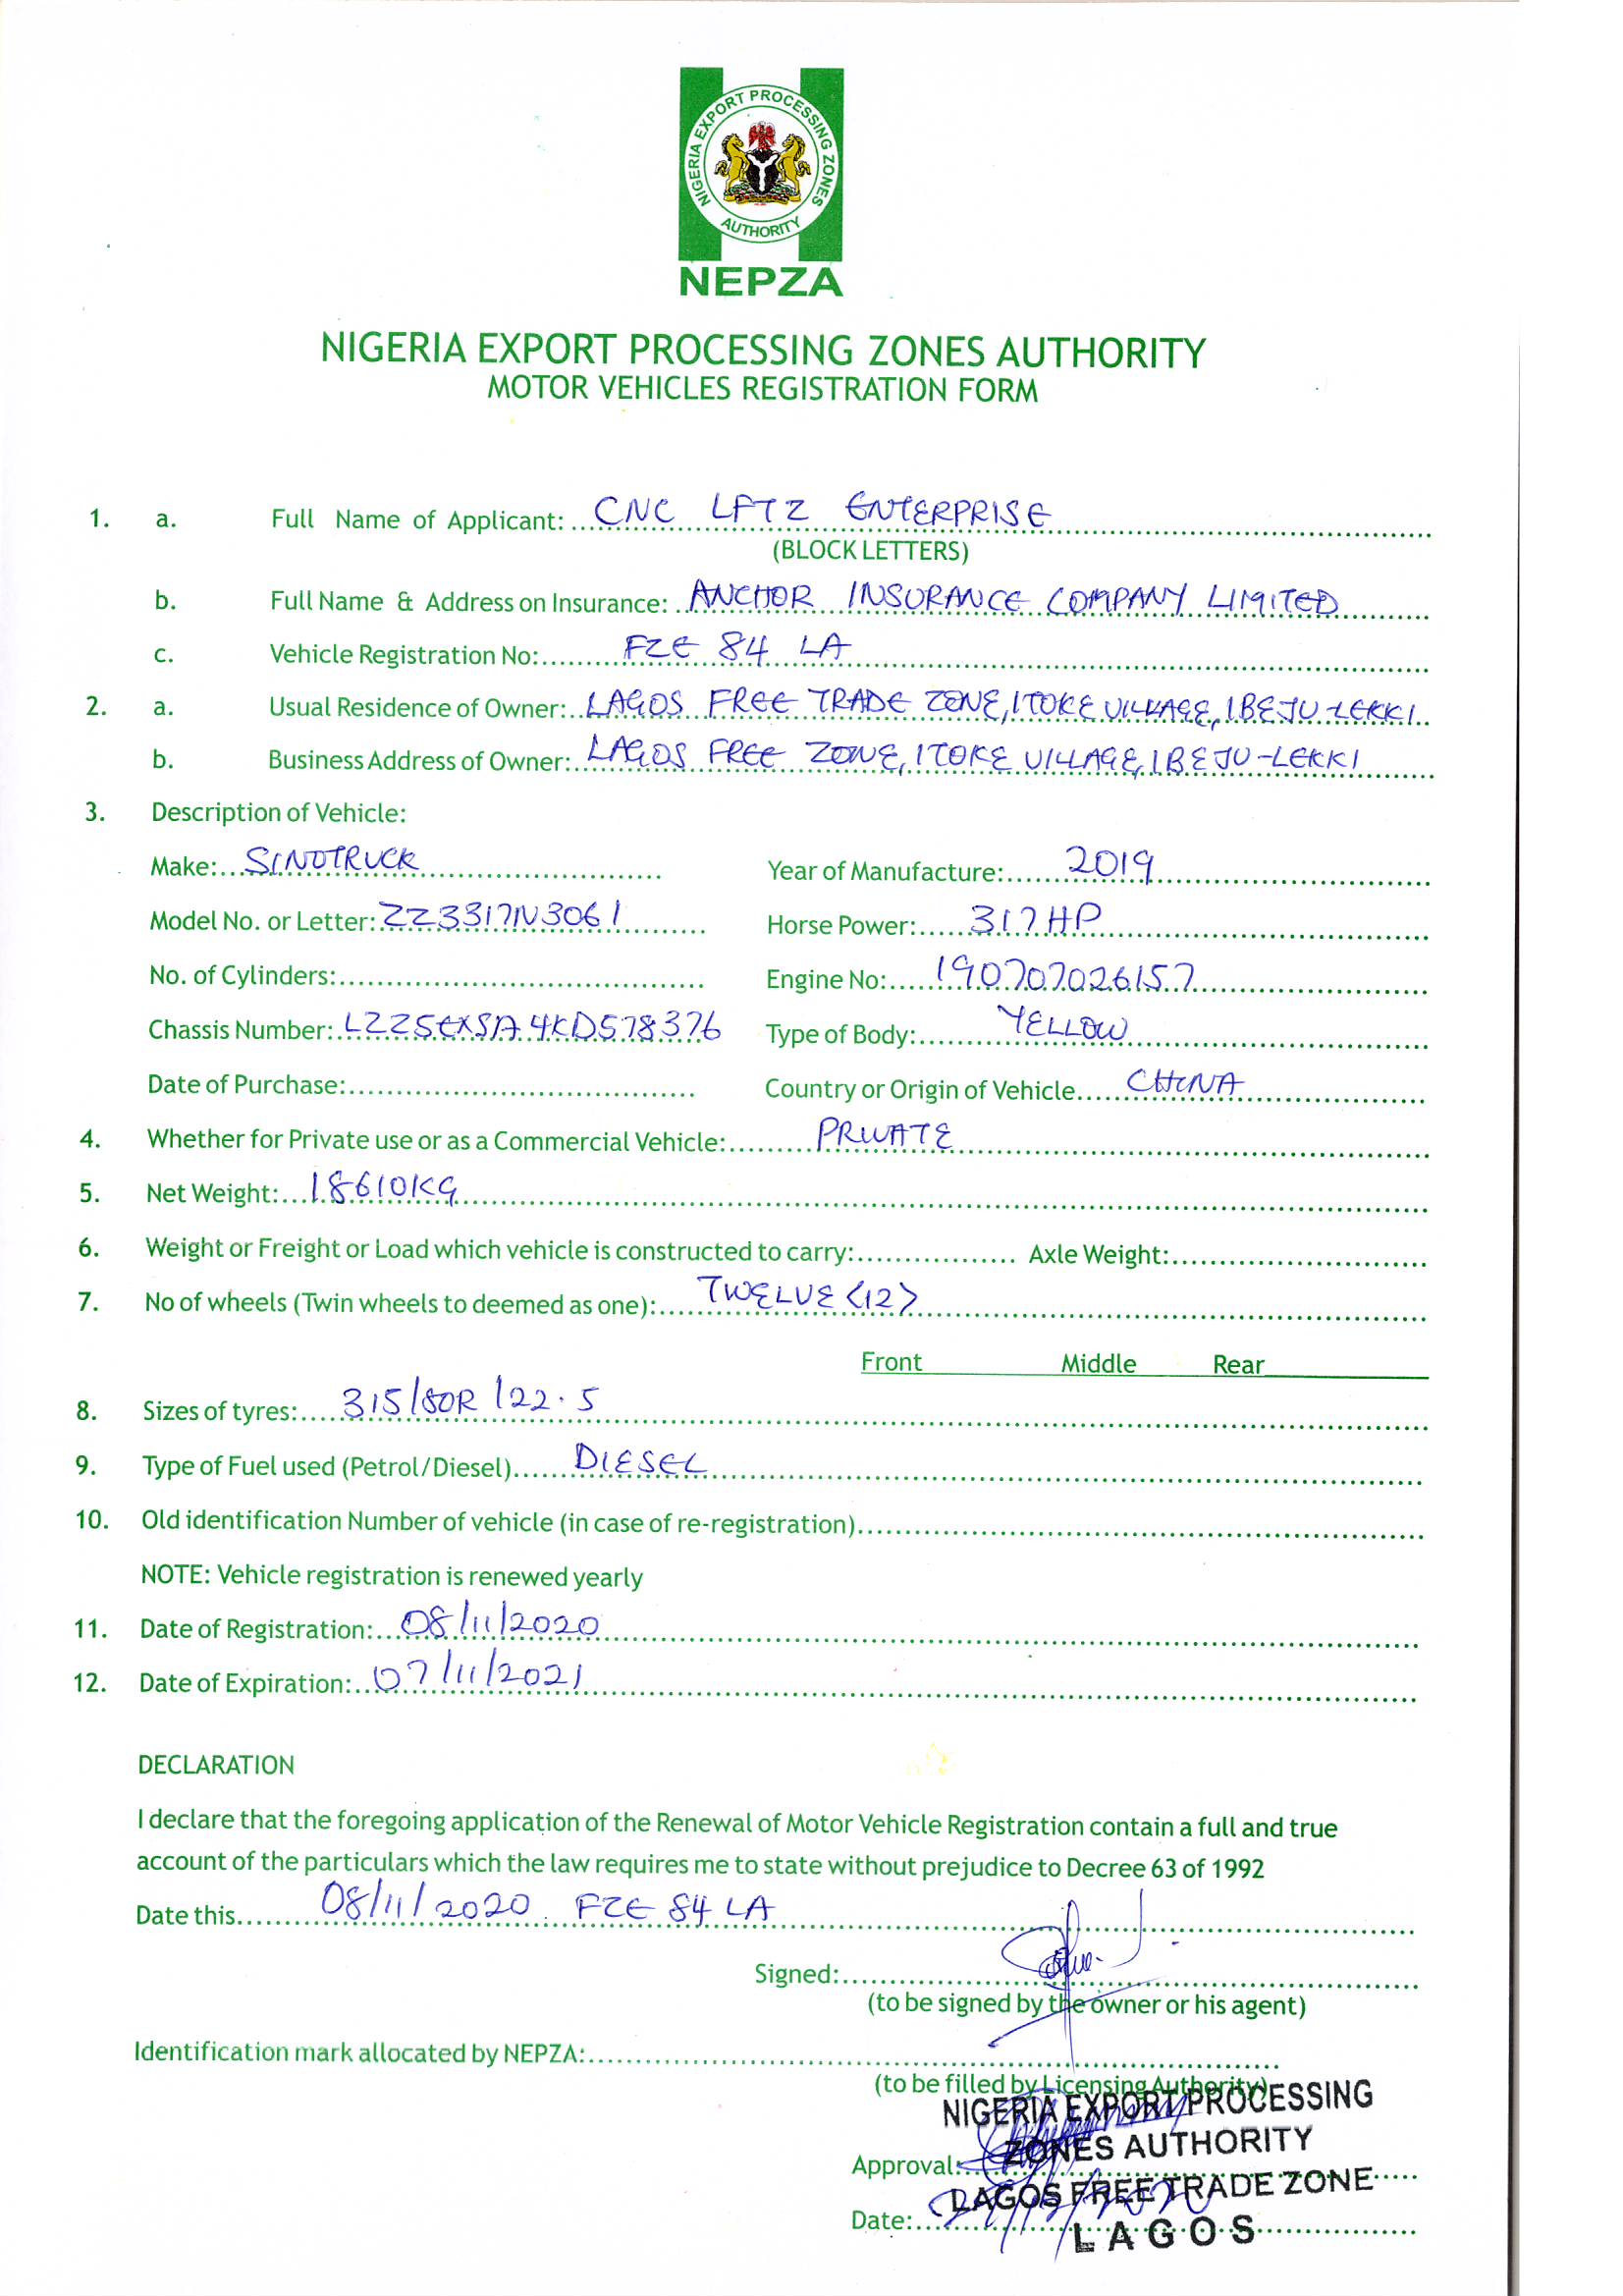 NIGERIA EXPORT PROCESSING ZONES
AUTHORITY
NEPZA
NIGERIA EXPORT PROCESSING ZONES AUTHORITY
MOTOR VEHICLES REGISTRATION FORM
1. a. Full Name of Applicant: CNC LFTZ ENTERPRISE
(BLOCK LETTERS)
b. Full Name & Address on Insurance: ANCHOR INSURANCE COMPANY LIMITED
c. Vehicle Registration No: FZE 84 LA
2. a. Usual Residence of Owner: LAGOS FREE TRADE ZONE, ITOKE VILLAGE, IBEJU-LEKKI
b. Business Address of Owner: LAGOS FREE ZONE, ITOKE VILLAGE, IBEJU-LEKKI
3. Description of Vehicle:
Make: SINOTRUCK Year of Manufacture: 2019
Model No. or Letter: ZZ3317N3061 Horse Power: 317HP
No. of Cylinders: Engine No: 190707026157
Chassis Number: LZZ5EXSA4KD578376 Type of Body: YELLOW
Date of Purchase: Country or Origin of Vehicle CHINA
4. Whether for Private use or as a Commercial Vehicle: PRIVATE
5. Net Weight: 18610KG
6. Weight or Freight or Load which vehicle is constructed to carry: Axle Weight:
7. No of wheels (Twin wheels to deemed as one): TWELVE <12>
Front Middle Rear
8. Sizes of tyres: 315/80R/22.5
9. Type of Fuel used (Petrol/Diesel) DIESEL
10. Old identification Number of vehicle (in case of re-registration)
NOTE: Vehicle registration is renewed yearly
11. Date of Registration: 08/11/2020
12. Date of Expiration: 07/11/2021
DECLARATION
I declare that the foregoing application of the Renewal of Motor Vehicle Registration contain a full and true
account of the particulars which the law requires me to state without prejudice to Decree 63 of 1992
Date this 08/11/2020 FZE 84 LA
Signed:
(to be signed by the owner or his agent)
Identification mark allocated by NEPZA:
(to be filled by Licensing Authority)
NIGERIA EXPORT PROCESSING
ZONES AUTHORITY
Approval:
LAGOS FREE TRADE ZONE
Date:
LAGOS